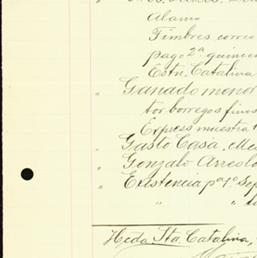 Alamo
Timbres correo
pago 2ª quincena
Estn. Catalina
" Ganado menor
tor borregos finos
Express muestra
" Gasto Casa, Me
" Gonzalo Arreol
" Existencia pª 1º Sep
" "
Hcda. Sta. Catalina,